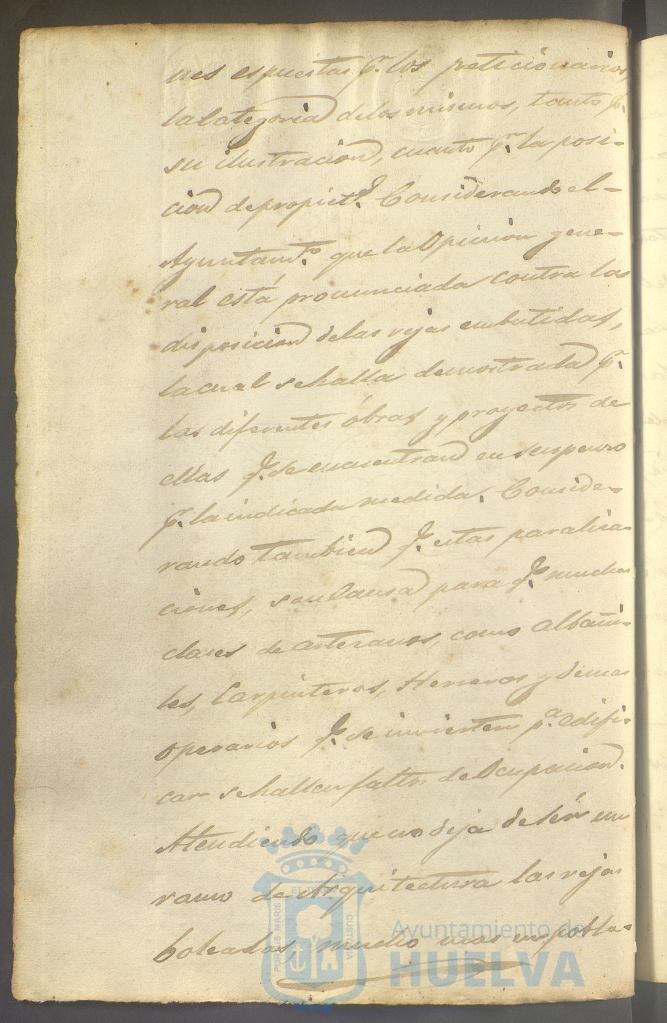 nes espuestas p.r los peticionarios,
la categoria de los mismos, tanto p.r
su ilustracion, cuanto p.r la posi-
cion de propiet.s Considerando el
Ayuntam.to que la Opinion gene-
ral está pronunciada contra la
disposicion de las rejas embutidas,
la cual se halla demostrada p.r
las diferentes óbras y proyectos de
ellas q.e se encuentran en suspenso
p.r la indicada medida. Conside-
rando tambien q.e estas paraliza-
ciones, son Causa para q.e muchas
clases de artesanos, como albañi-
les, Carpinteros, Herreros y demas
operarios q.e se invierten p.a edifi-
car se hallen faltos de Ocupacion.
Atendiendo que no deja de sér un
ramo de Arquitectura las rejas
boleadas, mucho mas en pobla-
Ayuntamiento de
HUELVA
PORTUS MARIS
ET TERRÆ
CUSTODIA